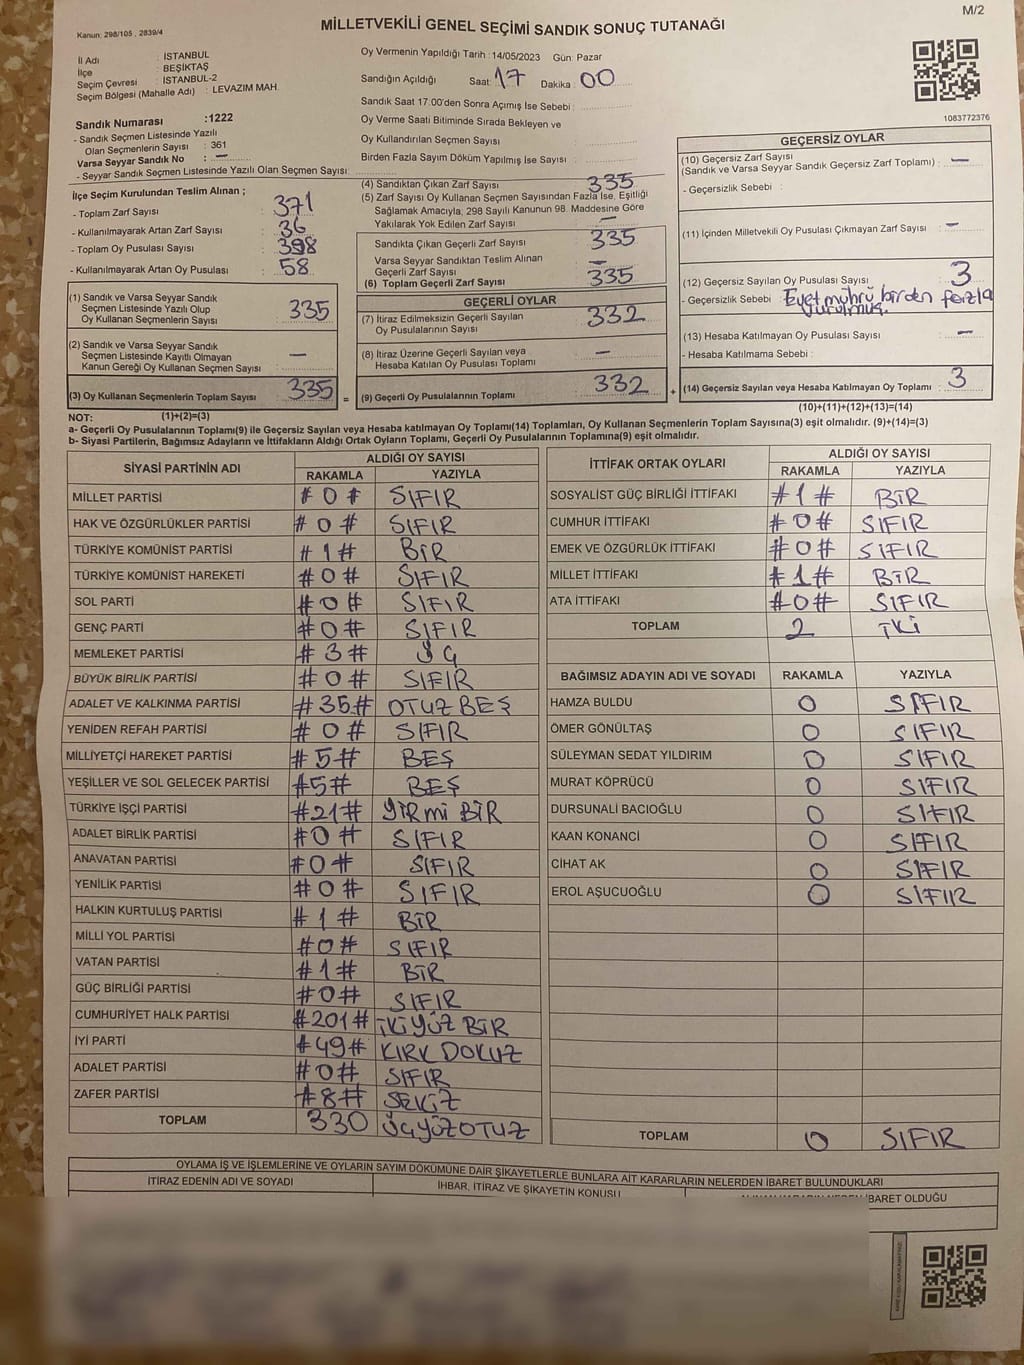 M/2
Kanun: 298/105 , 2839/4
MİLLETVEKİLİ GENEL SEÇİMİ SANDIK SONUÇ TUTANAĞI
İl Adı : İSTANBUL
İlçe : BEŞİKTAŞ
Seçim Çevresi : İSTANBUL-2
Seçim Bölgesi (Mahalle Adı) : LEVAZIM MAH.
Sandık Numarası :1222
- Sandık Seçmen Listesinde Yazılı
Olan Seçmenlerin Sayısı : 361
Varsa Seyyar Sandık No : —
- Seyyar Sandık Seçmen Listesinde Yazılı Olan Seçmen Sayısı
Oy Vermenin Yapıldığı Tarih : 14/05/2023 Gün: Pazar
Sandığın Açıldığı Saat: 17 Dakika : 00
Sandık Saat 17:00'den Sonra Açımış İse Sebebi :
Oy Verme Saati Bitiminde Sırada Bekleyen ve
Oy Kullandırılan Seçmen Sayısı :
Birden Fazla Sayım Döküm Yapılmış İse Sayısı :
1083772376
İlçe Seçim Kurulundan Teslim Alınan ;
- Toplam Zarf Sayısı : 371
- Kullanılmayarak Artan Zarf Sayısı : 36
- Toplam Oy Pusulası Sayısı : 398
- Kullanılmayarak Artan Oy Pusulası : 58
(1) Sandık ve Varsa Seyyar Sandık
Seçmen Listesinde Yazılı Olup
Oy Kullanan Seçmenlerin Sayısı : 335
(2) Sandık ve Varsa Seyyar Sandık
Seçmen Listesinde Kayıtlı Olmayan
Kanun Gereği Oy Kullanan Seçmen Sayısı : —
(3) Oy Kullanan Seçmenlerin Toplam Sayısı : 335 =
(4) Sandıktan Çıkan Zarf Sayısı : 335
(5) Zarf Sayısı Oy Kullanan Seçmen Sayısından Fazla İse, Eşitliği
Sağlamak Amacıyla, 298 Sayılı Kanunun 98. Maddesine Göre
Yakılarak Yok Edilen Zarf Sayısı : —
Sandıkta Çıkan Geçerli Zarf Sayısı : 335
Varsa Seyyar Sandıktan Teslim Alınan
Geçerli Zarf Sayısı : —
(6) Toplam Geçerli Zarf Sayısı : 335
GEÇERLİ OYLAR
(7) İtiraz Edilmeksizin Geçerli Sayılan
Oy Pusulalarının Sayısı : 332
(8) İtiraz Üzerine Geçerli Sayılan veya
Hesaba Katılan Oy Pusulası Toplamı : —
(9) Geçerli Oy Pusulalarının Toplamı : 332 +
GEÇERSİZ OYLAR
(10) Geçersiz Zarf Sayısı
(Sandık ve Varsa Seyyar Sandık Geçersiz Zarf Toplamı) : —
- Geçersizlik Sebebi :
(11) İçinden Milletvekili Oy Pusulası Çıkmayan Zarf Sayısı : —
(12) Geçersiz Sayılan Oy Pusulası Sayısı : 3
- Geçersizlik Sebebi : Evet mührü birden fazla
vurulmuş.
(13) Hesaba Katılmayan Oy Pusulası Sayısı : —
- Hesaba Katılmama Sebebi :
(14) Geçersiz Sayılan veya Hesaba Katılmayan Oy Toplamı : 3
NOT: (1)+(2)=(3) (10)+(11)+(12)+(13)=(14)
a- Geçerli Oy Pusulalarının Toplamı(9) ile Geçersiz Sayılan veya Hesaba katılmayan Oy Toplamı(14) Toplamları, Oy Kullanan Seçmenlerin Toplam Sayısına(3) eşit olmalıdır. (9)+(14)=(3)
b- Siyasi Partilerin, Bağımsız Adayların ve İttifakların Aldığı Ortak Oyların Toplamı, Geçerli Oy Pusulalarının Toplamına(9) eşit olmalıdır.
SİYASİ PARTİNİN ADI ALDIĞI OY SAYISI
RAKAMLA YAZIYLA
MİLLET PARTİSİ # 0 # SIFIR
HAK VE ÖZGÜRLÜKLER PARTİSİ # 0 # SIFIR
TÜRKİYE KOMÜNİST PARTİSİ # 1 # BİR
TÜRKİYE KOMÜNİST HAREKETİ # 0 # SIFIR
SOL PARTİ # 0 # SIFIR
GENÇ PARTİ # 0 # SIFIR
MEMLEKET PARTİSİ # 3 # ÜÇ
BÜYÜK BİRLİK PARTİSİ # 0 # SIFIR
ADALET VE KALKINMA PARTİSİ # 35 # OTUZ BEŞ
YENİDEN REFAH PARTİSİ # 0 # SIFIR
MİLLİYETÇİ HAREKET PARTİSİ # 5 # BEŞ
YEŞİLLER VE SOL GELECEK PARTİSİ # 5 # BEŞ
TÜRKİYE İŞÇİ PARTİSİ # 21 # YİRMİ BİR
ADALET BİRLİK PARTİSİ # 0 # SIFIR
ANAVATAN PARTİSİ # 0 # SIFIR
YENİLİK PARTİSİ # 0 # SIFIR
HALKIN KURTULUŞ PARTİSİ # 1 # BİR
MİLLİ YOL PARTİSİ # 0 # SIFIR
VATAN PARTİSİ # 1 # BİR
GÜÇ BİRLİĞİ PARTİSİ # 0 # SIFIR
CUMHURİYET HALK PARTİSİ # 201 # İKİ YÜZ BİR
İYİ PARTİ # 49 # KIRK DOKUZ
ADALET PARTİSİ # 0 # SIFIR
ZAFER PARTİSİ # 8 # SEKİZ
TOPLAM 330 ÜÇ YÜZ OTUZ
İTTİFAK ORTAK OYLARI ALDIĞI OY SAYISI
RAKAMLA YAZIYLA
SOSYALİST GÜÇ BİRLİĞİ İTTİFAKI # 1 # BİR
CUMHUR İTTİFAKI # 0 # SIFIR
EMEK VE ÖZGÜRLÜK İTTİFAKI # 0 # SIFIR
MİLLET İTTİFAKI # 1 # BİR
ATA İTTİFAKI # 0 # SIFIR
TOPLAM 2 İKİ
BAĞIMSIZ ADAYIN ADI VE SOYADI RAKAMLA YAZIYLA
HAMZA BULDU 0 SIFIR
ÖMER GÖNÜLTAŞ 0 SIFIR
SÜLEYMAN SEDAT YILDIRIM 0 SIFIR
MURAT KÖPRÜCÜ 0 SIFIR
DURSUNALİ BACIOĞLU 0 SIFIR
KAAN KONANCİ 0 SIFIR
CİHAT AK 0 SIFIR
EROL AŞUCUOĞLU 0 SIFIR
TOPLAM 0 SIFIR
OYLAMA İŞ VE İŞLEMLERİNE VE OYLARIN SAYIM DÖKÜMÜNE DAİR ŞİKAYETLERLE BUNLARA AİT KARARLARIN NELERDEN İBARET BULUNDUKLARI
İTİRAZ EDENİN ADI VE SOYADI
İHBAR, İTİRAZ VE ŞİKAYETİN KONUSU
İBARET OLDUĞU